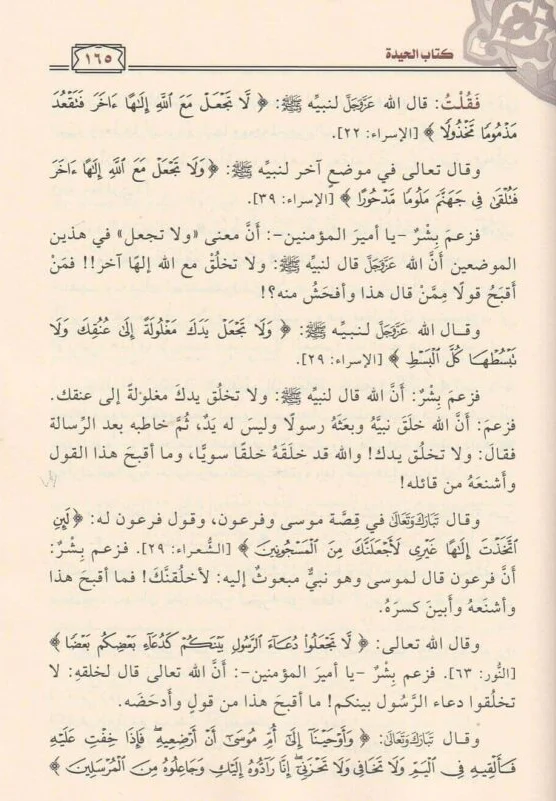 كتاب الحيدة
١٦٥
فَقُلْتُ: قال الله عَزَّوَجَلَّ لنبيِّه ﷺ: ﴿ لَّا تَجْعَلْ مَعَ ٱللَّهِ إِلَٰهًا ءَاخَرَ فَتَقْعُدَ
مَذْمُومًا مَّخْذُولًا ﴾ [الإسراء: ٢٢].
وقال تعالى في موضعٍ آخر لنبيِّه ﷺ: ﴿وَلَا تَجْعَلْ مَعَ ٱللَّهِ إِلَٰهًا ءَاخَرَ
فَتُلْقَىٰ فِى جَهَنَّمَ مَلُومًا مَّدْحُورًا ﴾ [الإسراء: ٣٩].
فزعم بِشْرٌ -يا أميرَ المؤمنين-: أنَّ معنى «ولا تجعل» في هذين
الموضعين أنَّ الله عَزَّوَجَلَّ قال لنبيِّه ﷺ: ولا تخلُق مع الله إلهًا آخر!! فمَنْ
أقبَحُ قولًا مِمَّنْ قال هذا وأفحَشُ منه؟!
وقال الله عَزَّوَجَلَّ لنبيِّه ﷺ: ﴿ وَلَا تَجْعَلْ يَدَكَ مَغْلُولَةً إِلَىٰ عُنُقِكَ وَلَا
تَبْسُطْهَا كُلَّ ٱلْبَسْطِ ﴾ [الإسراء: ٢٩].
فزعمَ بِشْرٌ: أنَّ الله قال لنبيِّه ﷺ: ولا تخلُق يدكَ مغلولةً إلى عنقك.
فزعمَ: أنَّ الله خلَق نبيَّهُ وبعثَهُ رسولًا وليسَ له يَدٌ، ثُمَّ خاطبه بعد الرِّسالة
فقالَ: ولا تخلُق يدك! والله قد خلَقَهُ خلقًا سويًّا، وما أقبحَ هذا القول
وأشنعَهُ من قائله!
وقال تَبَارَكَ وَتَعَالَىٰ في قِصَّة موسى وفرعون، وقول فرعون له: ﴿لَئِنِ
ٱتَّخَذْتَ إِلَٰهًا غَيْرِى لَأَجْعَلَنَّكَ مِنَ ٱلْمَسْجُونِينَ ﴾ [الشُّعراء: ٢٩]. فزعم بِشْرٌ:
أنَّ فرعون قال لموسى وهو نبيٌّ مبعوثٌ إليه: لأخلُقنَّكَ! فما أقبحَ هذا
وأشنَعهُ وأبينَ كسرَهُ.
وقال الله تعالى: ﴿ لَّا تَجْعَلُوا۟ دُعَآءَ ٱلرَّسُولِ بَيْنَكُمْ كَدُعَآءِ بَعْضِكُم بَعْضًا ﴾
[النُّور: ٦٣]. فزعم بِشْرٌ -يا أميرَ المؤمنين-: أنَّ الله تعالى قال لخلقِهِ: لا
تخلُقوا دعاء الرَّسُول بينكم! ما أقبحَ هذا من قولٍ وأدحَضَه.
وقال تَبَارَكَ وَتَعَالَىٰ: ﴿ وَأَوْحَيْنَآ إِلَىٰٓ أُمِّ مُوسَىٰٓ أَنْ أَرْضِعِيهِ ۖ فَإِذَا خِفْتِ عَلَيْهِ
فَأَلْقِيهِ فِى ٱلْيَمِّ وَلَا تَخَافِى وَلَا تَحْزَنِىٓ ۖ إِنَّا رَآدُّوهُ إِلَيْكِ وَجَاعِلُوهُ مِنَ ٱلْمُرْسَلِينَ ﴾